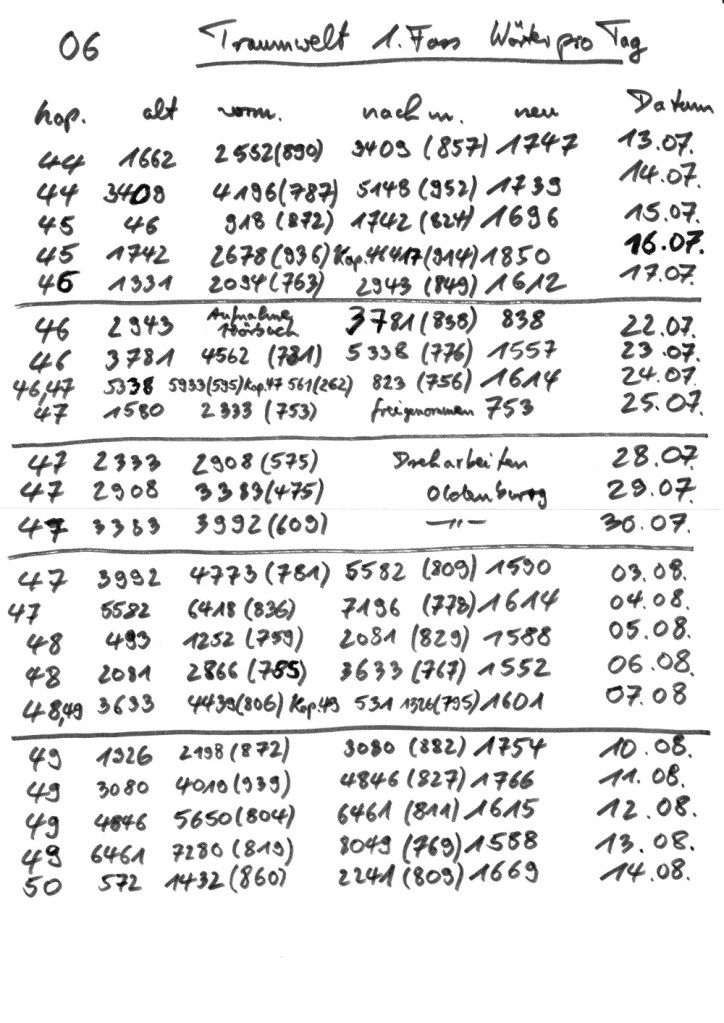 06 Traumwelt 1. Fass Wörter pro Tag
Kap. alt vorm. nachm. neu Datum
44 1662 2552(890) 3409 (857) 1747 13.07.
44 3409 4196(787) 5148 (952) 1739 14.07.
45 46 918 (872) 1742 (824) 1696 15.07.
45 1742 2678 (936) Kap.46 417 (914) 1850 16.07.
46 1331 2094 (763) 2943 (849) 1612 17.07.
46 2943 Aufnahme Hörbuch 3781 (838) 838 22.07.
46 3781 4562 (781) 5338 (776) 1557 23.07.
46,47 5338 5933(595) Kap.47 561(262) 823 (756) 1614 24.07.
47 1580 2333 (753) freigenommen 753 25.07.
47 2333 2908 (575) Dreharbeiten 28.07.
47 2908 3383 (475) Oldenburg 29.07.
47 3383 3992 (609) —"— 30.07.
47 3992 4773 (781) 5582 (809) 1590 03.08.
47 5582 6418 (836) 7196 (778) 1614 04.08.
48 493 1252 (759) 2081 (829) 1588 05.08.
48 2081 2866 (785) 3633 (767) 1552 06.08.
48,49 3633 4439(806) Kap.49 531 1326(795) 1601 07.08
49 1326 2198 (872) 3080 (882) 1754 10.08.
49 3080 4019 (939) 4846 (827) 1766 11.08.
49 4846 5650 (804) 6461 (811) 1615 12.08.
49 6461 7280 (819) 8049 (769) 1588 13.08.
50 572 1432 (860) 2241 (809) 1669 14.08.